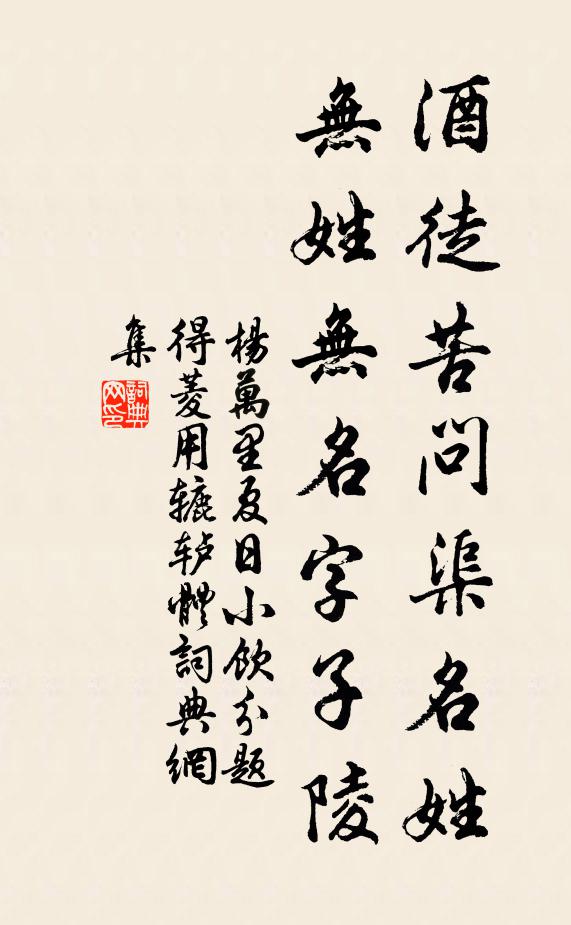 酒徒苦问渠名姓
無姓無名字子陵
楊萬里夏日小飲分题
得菱用辘轳體詞典網
集
詞典
网印